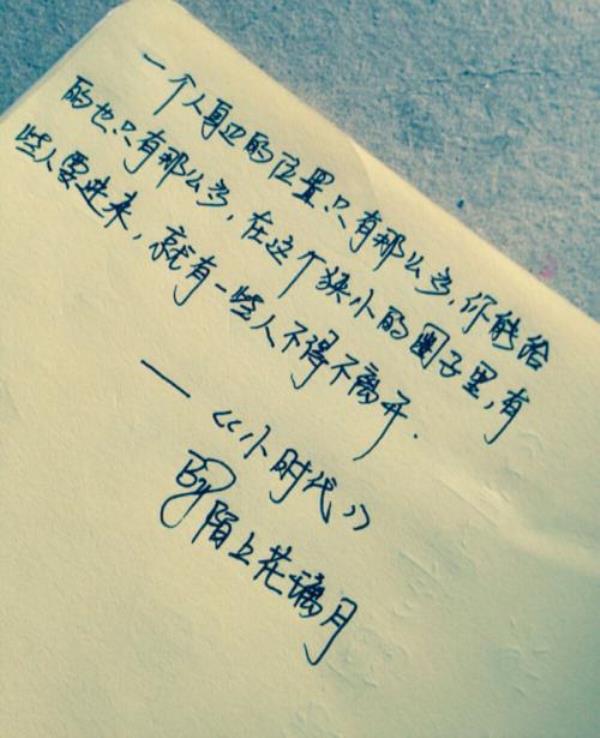 一个人身边的位置只有那么多,你能给
的也只有那么多,在这个狭小的圈子里,有
些人要进来,就有一些人不得不离开.
——《小时代》
By陌上花璃月